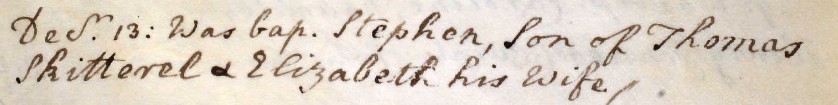 Decr. 13: Was bap. Stephen, Son of Thomas
Skitterel & Elizabeth his Wife,